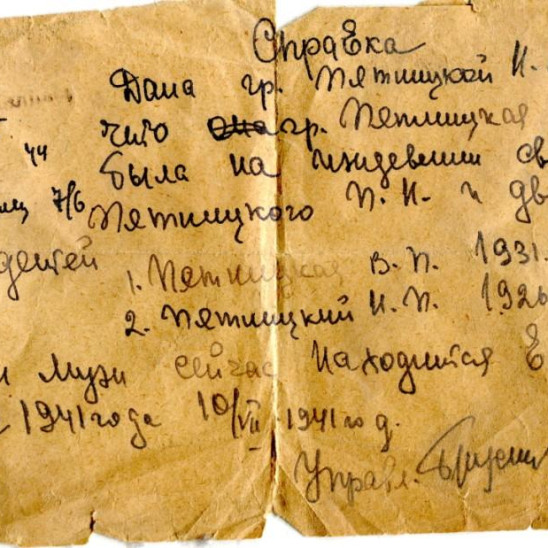 Справка
Дана гр. Пятницкой Н.
что гр. Пятницкая
44 была на иждевении св
7/6 Пятницкого П. И. и дв
детей 1. Пятницкая В. П. 1931.
2. Пятницкий И. П. 1926
и музи сейчас находится
1941 года 10/VII 1941 год.
Управл.